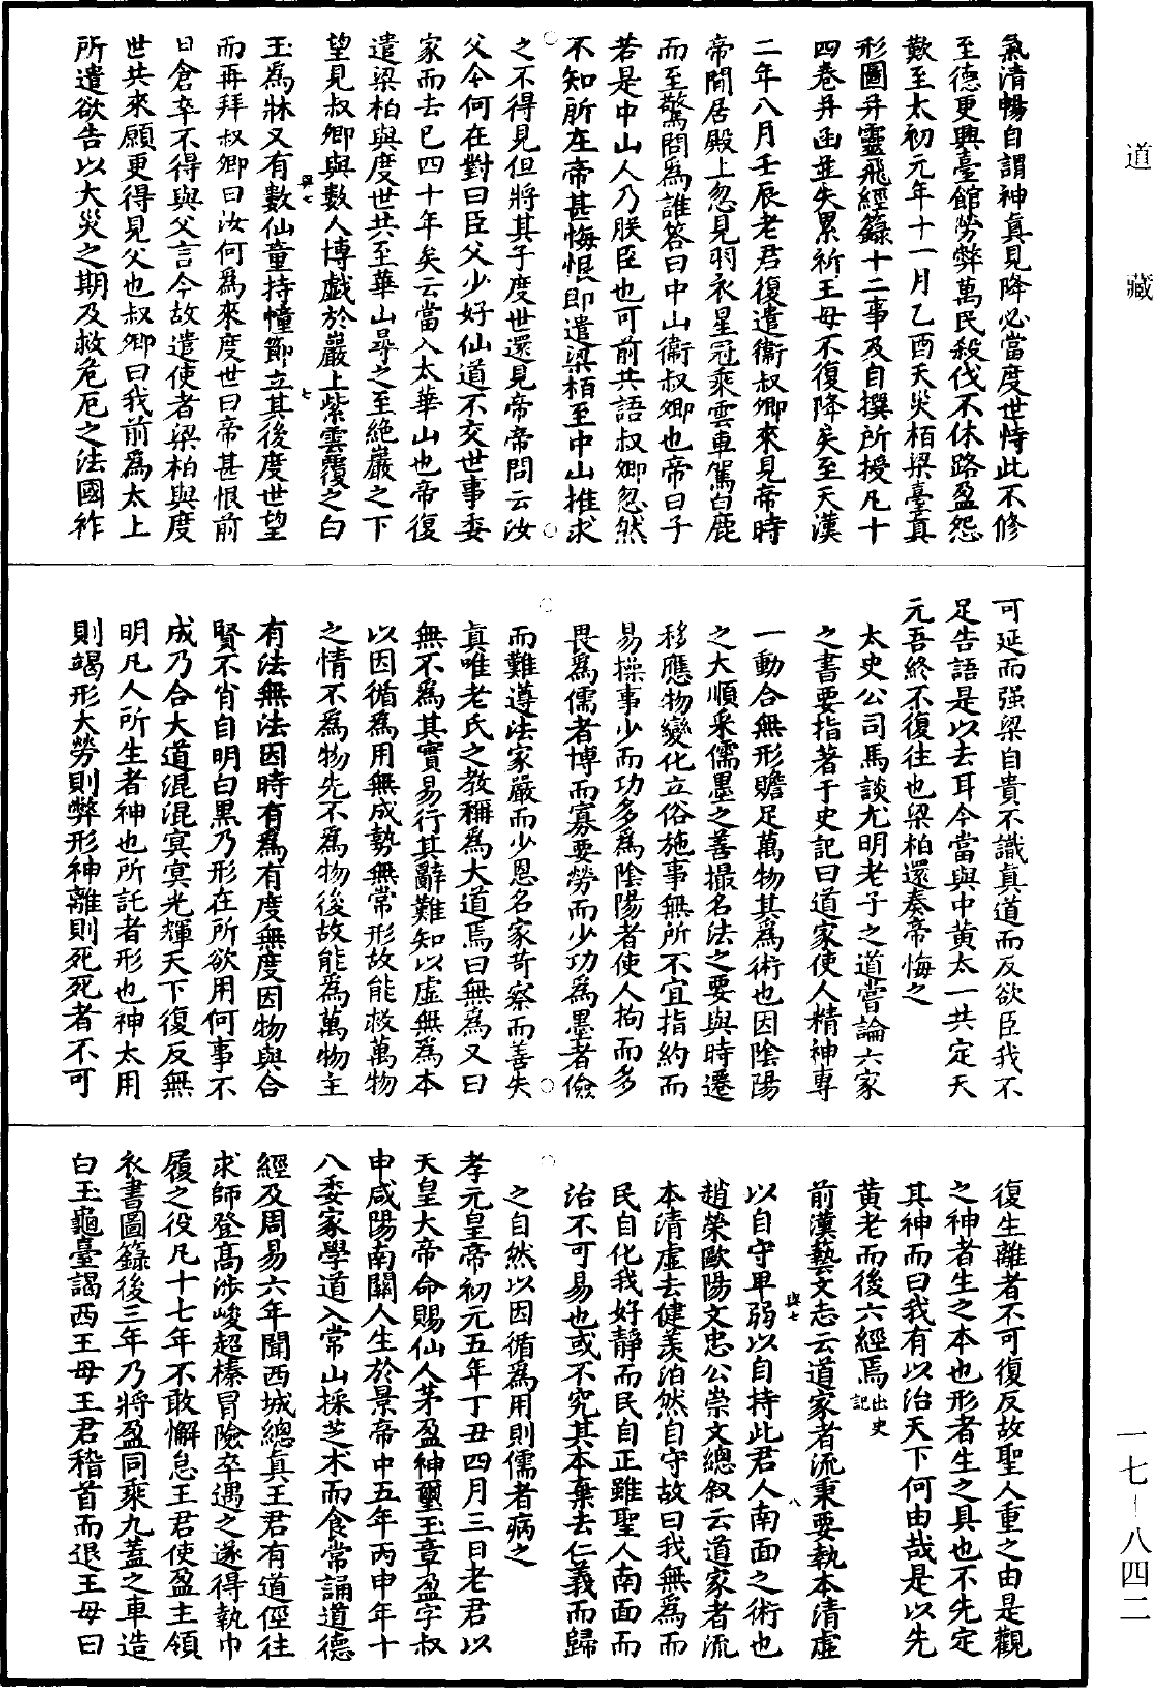 道藏
氣清暢自謂神眞見降必當度世恃此不修
至德更興臺館勞弊萬民殺伐不休路盈怨
歎至太初元年十一月乙酉天災栢梁臺眞
形圖并靈飛經錄十二事及自撰所授凡十
四卷并函並失累祈王母不復降矣至天漢
二年八月壬辰老君復遣衞叔卿來見帝時
帝閒居殿上忽見羽衣星冠乘雲車駕白鹿
而至驚問爲誰答曰中山衞叔卿也帝曰子
若是中山人乃朕臣也可前共語叔卿忽然
不知所在帝甚悔恨即遣梁栢至中山推求
之不得見但將其子度世還見帝帝問云汝
父今何在對曰臣父少好仙道不交世事委
家而去已四十年矣云當入太華山也帝復
遣梁柏與度世共至華山尋之至絶巖之下
望見叔卿與數人博戲於巖上紫雲覆之白
與七
七
玉爲牀又有數仙童持幢節立其後度世望
而再拜叔卿曰汝何爲來度世曰帝甚恨前
日倉卒不得與父言今故遣使者梁柏與度
世共來願更得見父也叔卿曰我前爲太上
所遣欲告以大災之期及救危厄之法國祚
可延而强梁自貴不識眞道而反欲臣我不
足告語是以去耳今當與中黃太一共定天
元吾終不復往也梁柏還奏帝悔之
太史公司馬談尤明老子之道嘗論六家
之書要指著于史記曰道家使人精神專
一動合無形贍足萬物其爲術也因陰陽
之大順釆儒墨之善撮名法之要與時遷
移應物變化立俗施事無所不宜指約而
易操事少而功多爲陰陽者使人拘而多
畏爲儒者博而寡要勞而少功爲墨者儉
而難遵法家嚴而少恩名家苛察而善失
眞唯老氏之敎稱爲大道焉曰無爲又曰
無不爲其實易行其辭難知以虛無爲本
以因循爲用無成勢無常形故能救萬物
之情不爲物先不爲物後故能爲萬物主
有法無法因時有爲有度無度因物與合
賢不肖自明白黑乃形在所欲用何事不
成乃合大道混混冥冥光輝天下復反無
明凡人所生者神也所託者形也神太用
則竭形大勞則弊形神離則死死者不可
復生離者不可復反故聖人重之由是觀
之神者生之本也形者生之具也不先定
其神而曰我有以治天下何由哉是以先
黃老而後六經焉出史記
前漢藝文志云道家者流秉要執本清虛
與七
八
以自守卑弱以自持此君人南面之術也
趙榮歐陽文忠公崇文總叙云道家者流
本清虛去健羨泊然自守故曰我無爲而
民自化我好靜而民自正雖聖人南面而
治不可易也或不究其本棄去仁義而歸
之自然以因循爲用則儒者病之
孝元皇帝初元五年丁丑四月三日老君以
天皇大帝命賜仙人茅盈神璽玉章盈字叔
申咸陽南關人生於景帝中五年丙申年十
八委家學道入常山採芝术而食常誦道德
經及周易六年聞西城總眞王君有道徑往
求師登高涉峻超榛冒險卒遇之遂得執巾
履之役凡十七年不敢懈怠王君使盈主領
衣書圖錄後三年乃將盈同乘九蓋之車造
白玉龜臺謁西王母王君稽首而退王母曰
一七-八四二